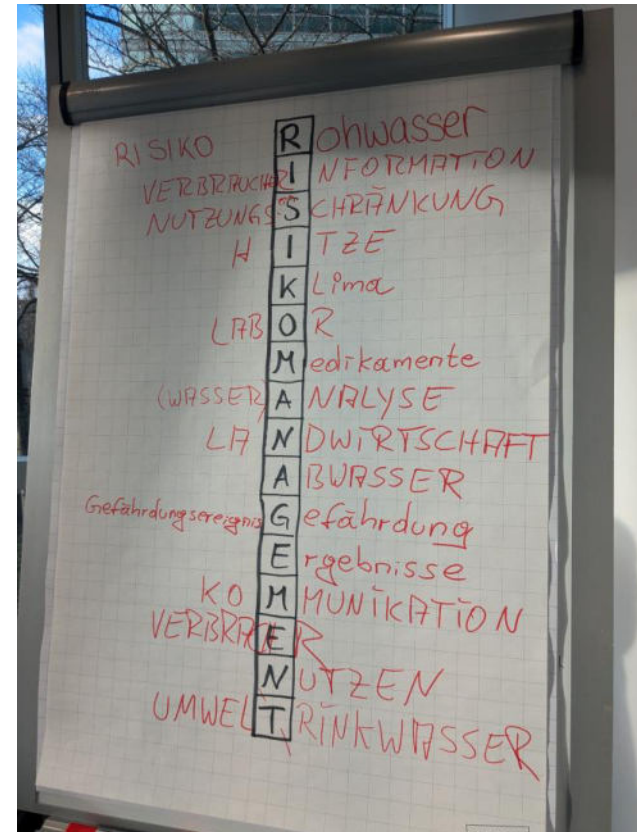 RISIKO Rohwasser
VERBRAUCHERINFORMATION
NUTZUNGSSCHRÄNKUNG
HITZE
Klima
LABOR
Medikamente
(WASSER)ANALYSE
LANDWIRTSCHAFT
ABWASSER
Gefährdungsereignis Gefährdung
Ergebnisse
KOMMUNIKATION
VERBRAUCHER
NUTZEN
UMWELT TRINKWASSER